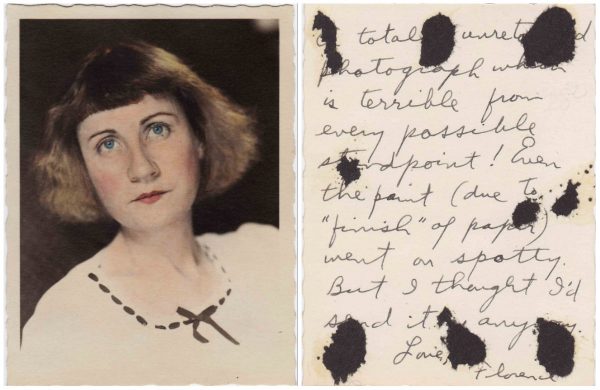 totally unretouched
photograph which
is terrible from
every possible
standpoint! Even
the paint (due to
"finish" of paper)
went on spotty.
But I thought I'd
send it anyway.
Love,
Florence